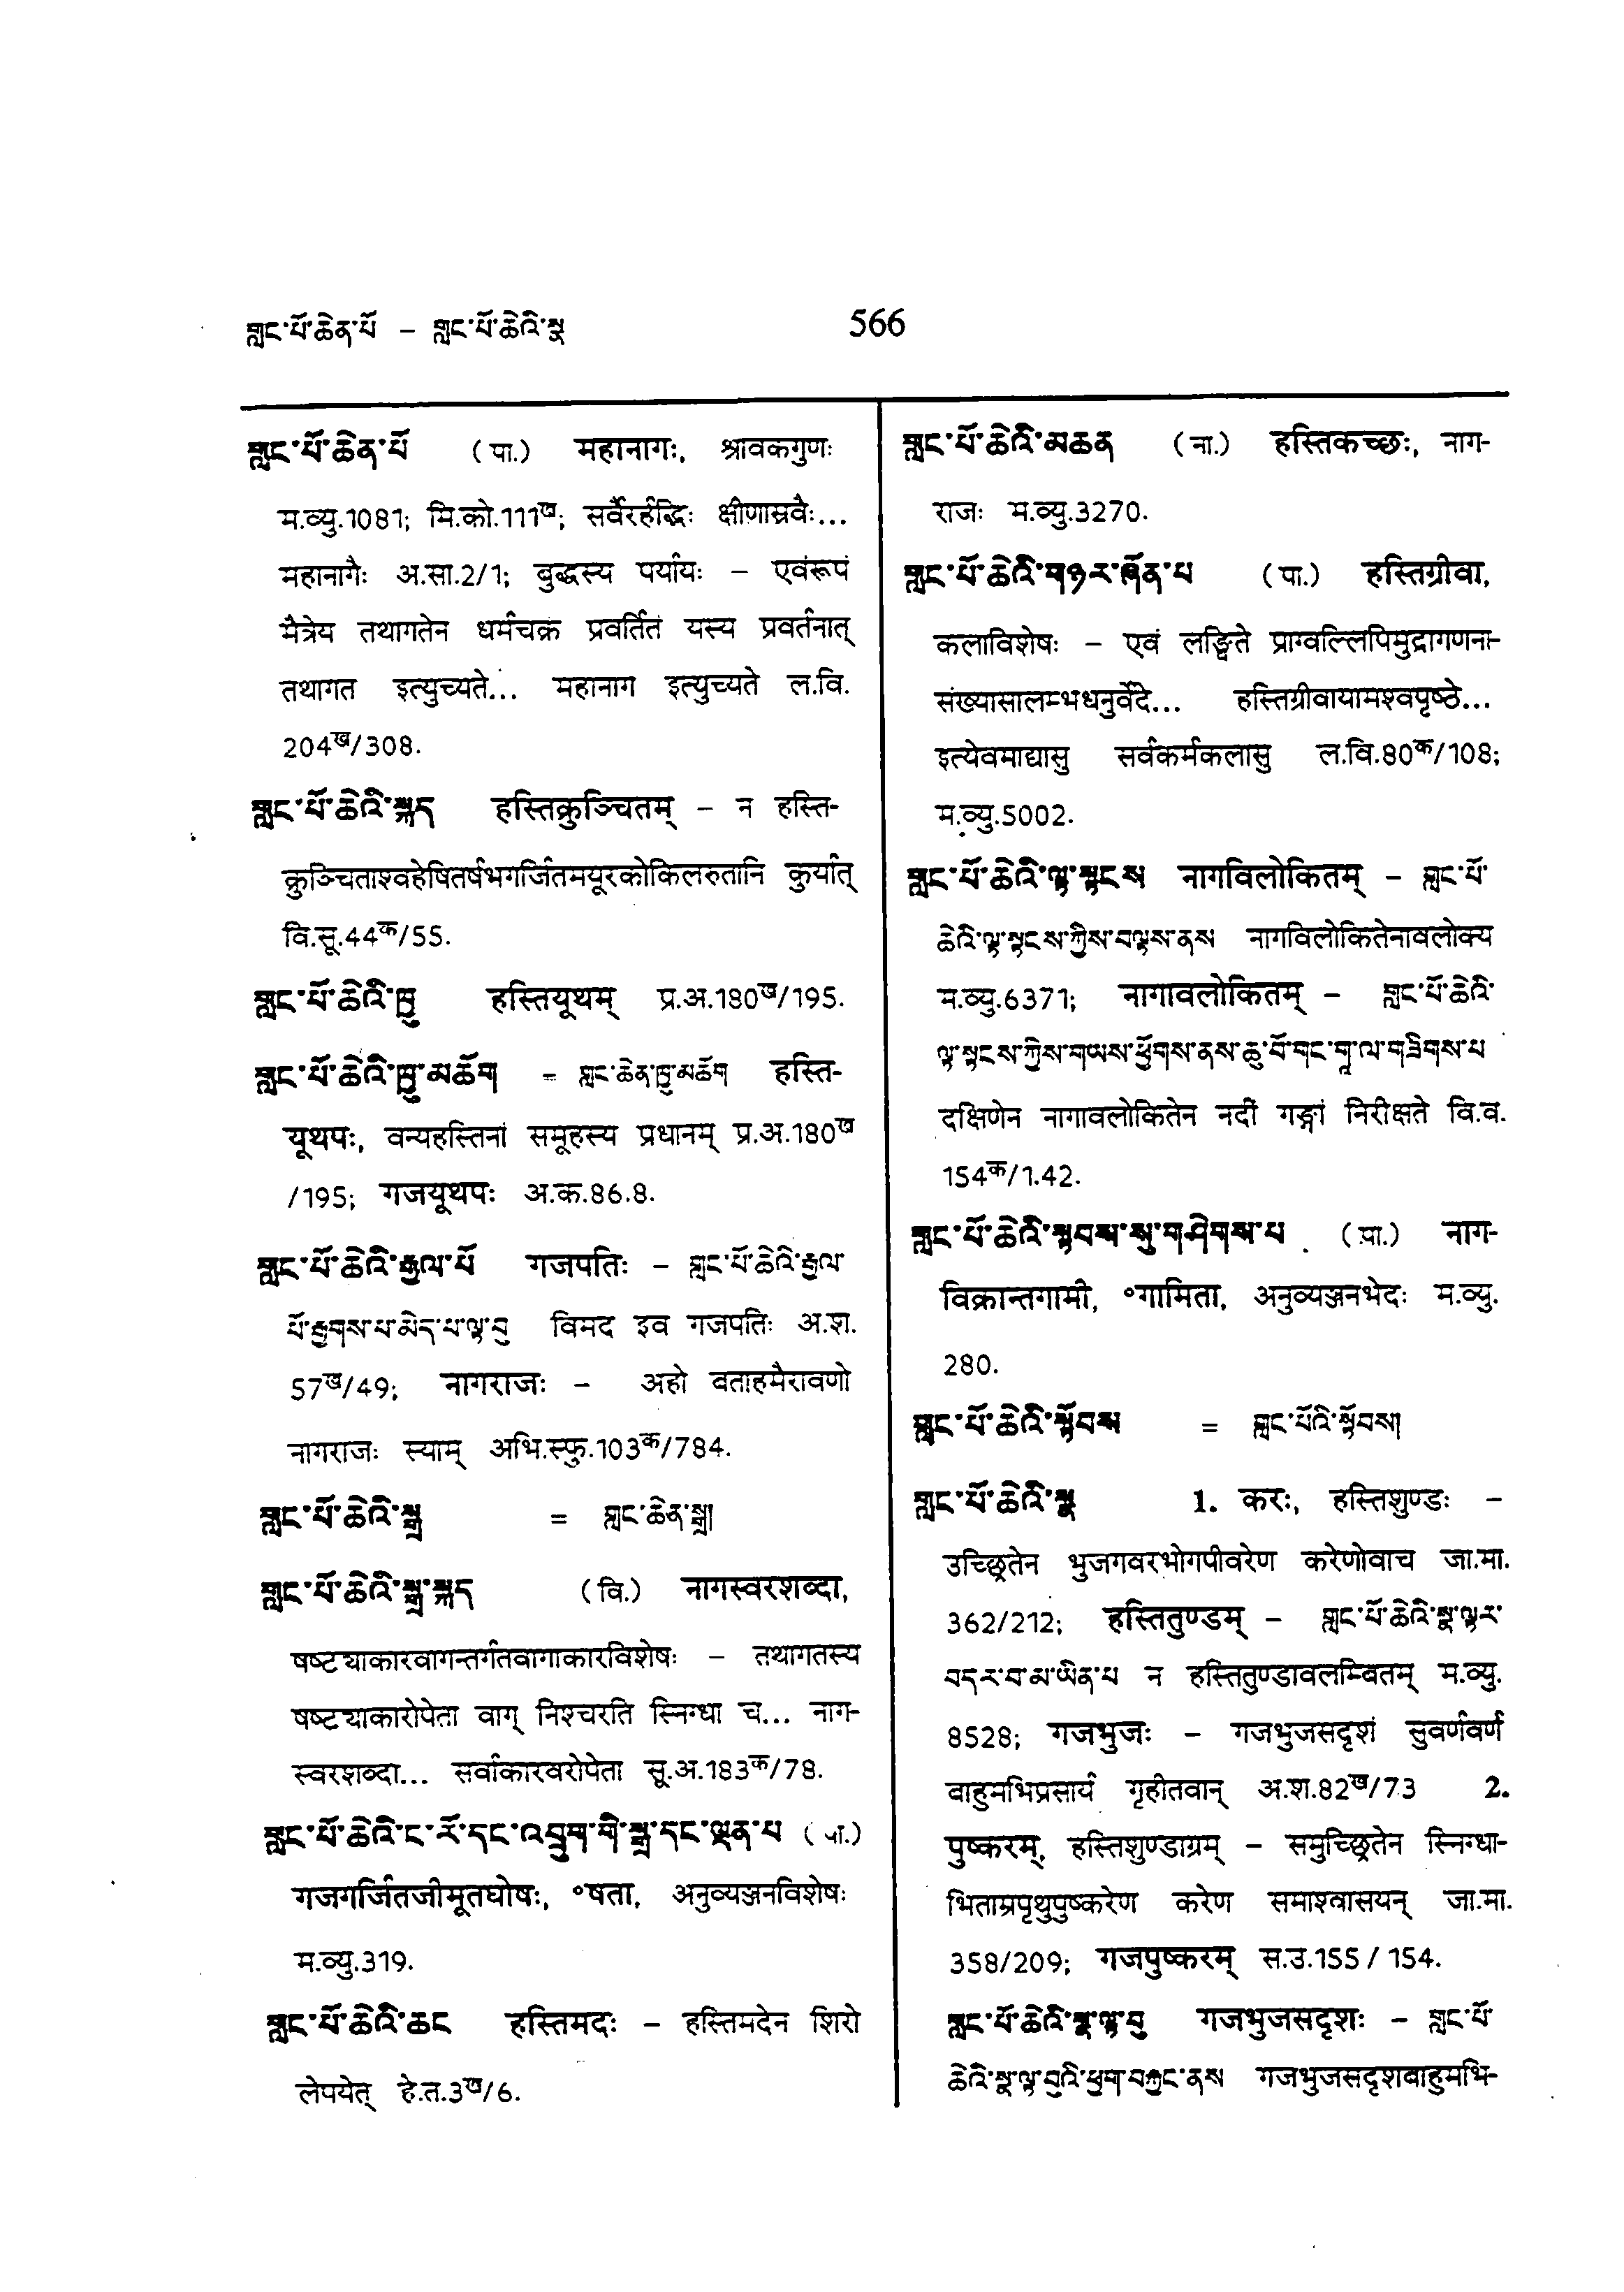 གླང་པོ་ཆེན་པོ – གླང་པོ་ཆེའི་སྣ
566
གླང་པོ་ཆེན་པོ (पा.) महानागः, श्रावकगुणः
म.व्यु.1081; मि.को.111ख; सर्वैरर्हद्भिः क्षीणास्रवैः...
महानागैः अ.सा.2/1; बुद्धस्य पर्यायः – एवंरूपं
मैत्रेय तथागतेन धर्मचक्रं प्रवर्तितं यस्य प्रवर्तनात्
तथागत इत्युच्यते... महानाग इत्युच्यते ल.वि.
204ख/308.
གླང་པོ་ཆེའི་སྐད हस्तिक्रुञ्चितम् – न हस्ति-
क्रुञ्चिताश्वहेषितर्षभगर्जितमयूरकोकिलरुतानि कुर्यात्
वि.सू.44क/55.
གླང་པོ་ཆེའི་ཁྱུ हस्तियूथम् प्र.अ.180ख/195.
གླང་པོ་ཆེའི་ཁྱུ་མཆོག = གླང་ཆེན་ཁྱུ་མཆོག हस्ति-
यूथपः, वन्यहस्तिनां समूहस्य प्रधानम् प्र.अ.180ख
/195; गजयूथपः अ.क.86.8.
གླང་པོ་ཆེའི་རྒྱལ་པོ गजपतिः – གླང་པོ་ཆེའི་རྒྱལ་
པོ་རྒྱགས་པ་མེད་པ་ལྟ་བུ विमद इव गजपतिः अ.श.
57ख/49; नागराजः – अहो वताहमैरावणो
नागराजः स्याम् अभि.स्फु.103क/784.
གླང་པོ་ཆེའི་སྒྲ = གླང་ཆེན་སྒྲ།
གླང་པོ་ཆེའི་སྒྲ་སྐད (वि.) नागस्वरशब्दा,
षष्ट्याकारवागन्तर्गतवागाकारविशेषः – तथागतस्य
षष्ट्याकारोपेता वाग् निश्चरति स्निग्धा च... नाग-
स्वरशब्दा... सर्वाकारवरोपेता सू.अ.183क/78.
གླང་པོ་ཆེའི་ང་རོ་དང་འབྲུག་གི་སྒྲ་དང་ལྡན་པ (पा.)
गजगर्जितजीमूतघोषः, °षता, अनुव्यञ्जनविशेषः
म.व्यु.319.
གླང་པོ་ཆེའི་ཆང हस्तिमदः – हस्तिमदेन शिरो
लेपयेत् हे.त.3ख/6.
གླང་པོ་ཆེའི་མཆན (ना.) हस्तिकच्छः, नाग-
राजः म.व्यु.3270.
གླང་པོ་ཆེའི་གཉར་ཞོན་པ (पा.) हस्तिग्रीवा,
कलाविशेषः – एवं लङ्घिते प्राग्वल्लिपिमुद्रागणना-
संख्यासालम्भधनुर्वेदे... हस्तिग्रीवायामश्वपृष्ठे...
इत्येवमाद्यासु सर्वकर्मकलासु ल.वि.80क/108;
म.व्यु.5002.
གླང་པོ་ཆེའི་ལྟ་སྟངས नागविलोकितम् – གླང་པོ་
ཆེའི་ལྟ་སྟངས་ཀྱིས་བལྟས་ནས नागविलोकितेनावलोक्य
म.व्यु.6371; नागावलोकितम् – གླང་པོ་ཆེའི་
ལྟ་སྟངས་ཀྱིས་གཡས་ཕྱོགས་ནས་ཆུ་བོ་གང་གཱ་ལ་གཟིགས་པ
दक्षिणेन नागावलोकितेन नदीं गङ्गां निरीक्षते वि.व.
154क/1.42.
གླང་པོ་ཆེའི་སྟབས་སུ་གཤེགས་པ (पा.) नाग-
विक्रान्तगामी, °गामिता, अनुव्यञ्जनभेदः म.व्यु.
280.
གླང་པོ་ཆེའི་སྟོབས = གླང་པོའི་སྟོབས།
གླང་པོ་ཆེའི་སྣ 1. करः, हस्तिशुण्डः –
उच्छ्रितेन भुजगवरभोगपीवरेण करेणोवाच जा.मा.
362/212; हस्तितुण्डम् – གླང་པོ་ཆེའི་སྣ་ལྟར་
བདར་བ་མ་ཡིན་པ न हस्तितुण्डावलम्बितम् म.व्यु.
8528; गजभुजः – गजभुजसदृशं सुवर्णवर्ण
वाहुमभिप्रसार्य गृहीतवान् अ.श.82ख/73 2.
पुष्करम्, हस्तिशुण्डाग्रम् – समुच्छ्रितेन स्निग्धा-
भिताम्रपृथुपुष्करेण करेण समाश्वासयन् जा.मा.
358/209; गजपुष्करम् स.उ.155 / 154.
གླང་པོ་ཆེའི་སྣ་ལྟ་བུ गजभुजसदृशः – གླང་པོ་
ཆེའི་སྣ་ལྟ་བུའི་ཕྱག་བརྐྱང་ནས गजभुजसदृशवाहुमभि-